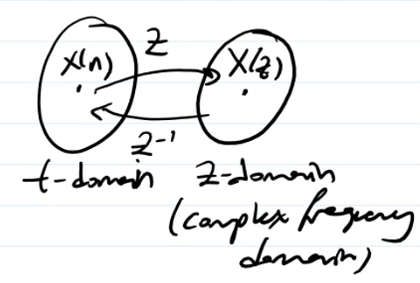 Z
X(n) X(z)
Z⁻¹
t-domain z-domain
(complex frequency
domain)